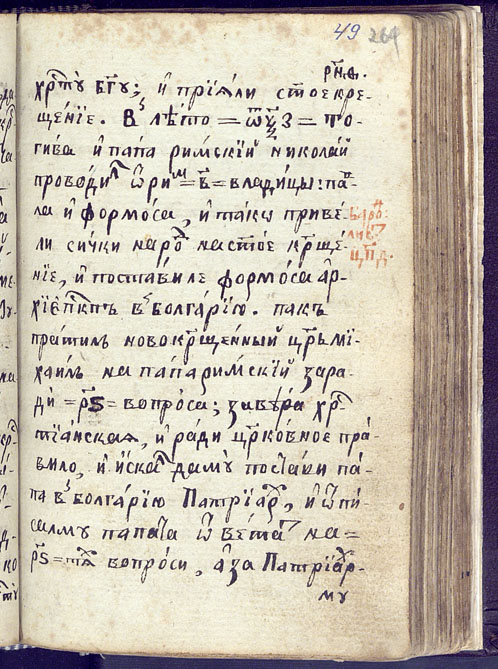 49 269
рн҃ѳ.
хрⷭ҇тꙋ̀ бг҃ꙋ; и҆ прїѧли ст҃оекре-
щенїе. Вꙿ лѣто = ѡ҃ѯ҃з = по-
гива и҆ папа римскїй николай
проводилⷧ ѡ҆римⷨ = в҃ = владицы: па-
ла и҆ формоса, и҆ тако приве-
ли сички народⷣ на ст҃ое крⷭ҇ще-
нїе, и҆ поставиле формоса а҆р-
хїепⷭ҇кпъ вꙿ болгарїю. пакъ
пратилъ новокрⷭ҇щенный цр҃ьми-
хаилъ на папа римскїй зара-
ди = рѕ҃ = вопроса; завѣра хрⷭ҇-
тїанская, и҆ ради цр҃ковное пра-
вило, и҆ искалⷧ дамꙋ̀ постави па-
па вꙿ болгарїю Патрїархⷯ, и҆ ѿпи-
салмꙋ папата ѿветатⷮ на =
рѕ҃ = тѧхⷯ вопроси, аза Патрїар-
мꙋ